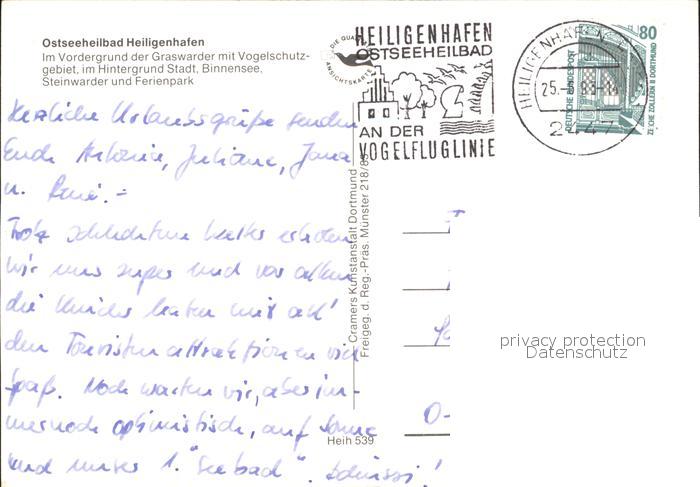 Ostseeheilbad Heiligenhafen
Im Vordergrund der Graswarder mit Vogelschutz-
gebiet, im Hintergrund Stadt, Binnensee,
Steinwarder und Ferienpark
DIE QUA
ANSICHTSKARTE
HEILIGENHAFEN
OSTSEEHEILBAD
AN DER
VOGELFLUGLINIE
HEILIGENHAFEN
25.
244
80
DEUTSCHE BUNDESPOST
ZECHE ZOLLERN II DORTMUND
Herzliche Urlaubsgrüße senden
Euch Antonia, Juliane, Jana
u. René.
Trotz schlechten Wetters erholen
wir uns super und vor allem
die Kinder hatten mit all'
den Touristenattraktionen viel
Spaß. Noch warten wir, aber im-
mernoch optimistisch, auf Sonne
und unser 1. "Seebad". Tschüssi!
Cramers Kunstanstalt Dortmund
Freigeg. d. Reg.-Präs. Münster 218/8
Heih 539
O-
privacy protection
Datenschutz